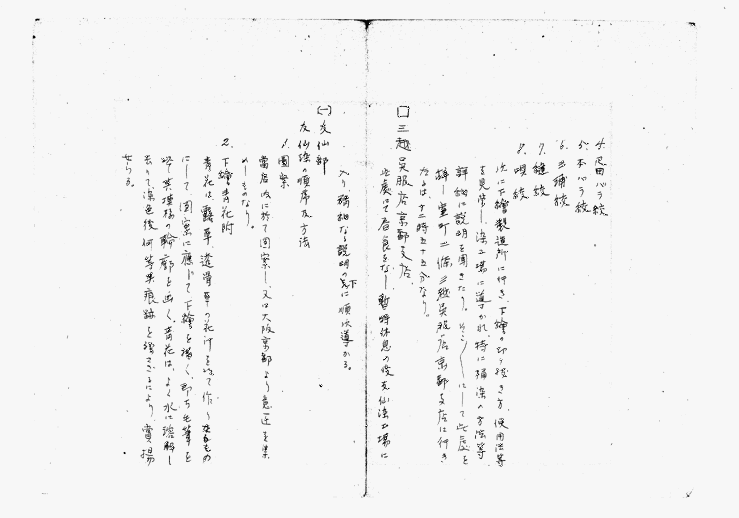 4. 疋田バラ絞
5. 本バラ絞
6. 三浦絞
7. 縫絞
8. 唄絞
次に下繪製造所に行き、下繪の切り抜き方、使用法等
を見学し、染工場に導かれ、特に桶染の方法等
詳細に説明を聞きたり。そこ〳〵にして此處を
辞し室町二條三越呉服店京都支店に行き
たるは、十二時五十五分なり。
□ 三越呉服店京都支店。
此處にて昼食をなし暫時休息の後友仙染工場に
入り詳細なる説明の下に順次導かる。
(一) 友仙部
友仙染の順序及方法
1. 圖案
當店内に於て圖案し、又は大阪京都より意匠を集
めしものなり。
2. 下繪青花附
青花は露草、道骨草の花汁を以て作りたるもの
にして圖案に應じて下繪を描く、即ち毛筆を
以て其模様の輪廓を画く、青花は、よく水に溶解し
去りて染色後何等其痕跡を留めざるにより賞揚
せらる。